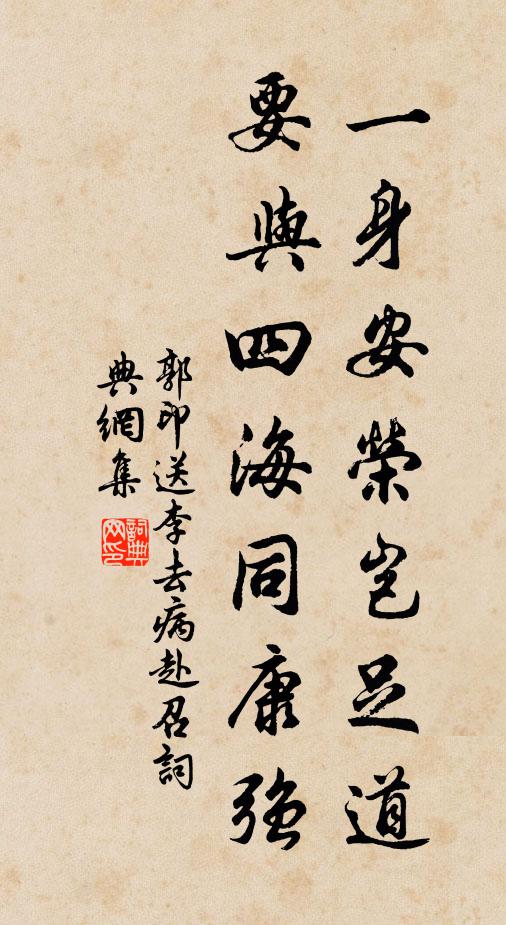 一身安榮岂足道
要與四海同康强
郭印送李去病赴召詞
典網集
詞典
网印